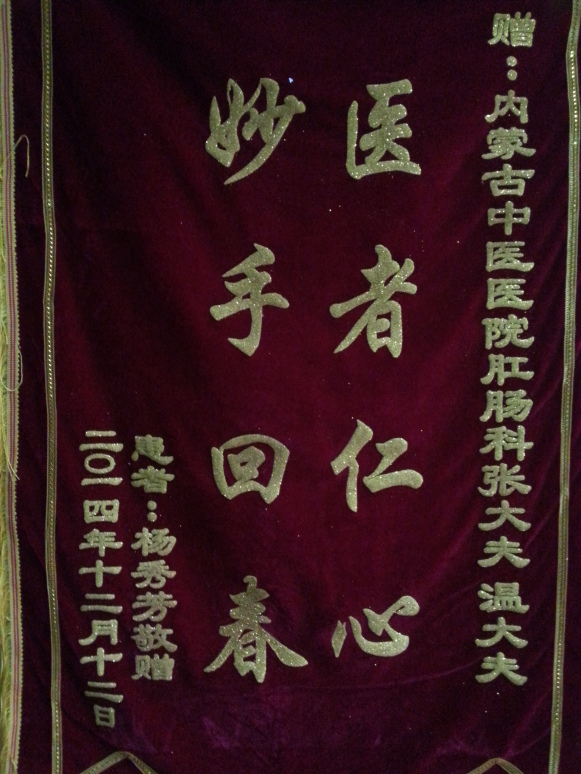 赠：内蒙古中医医院肛肠科张大夫 温大夫
医者仁心
妙手回春
患者：杨秀芳敬赠
二〇一四年十二月十二日